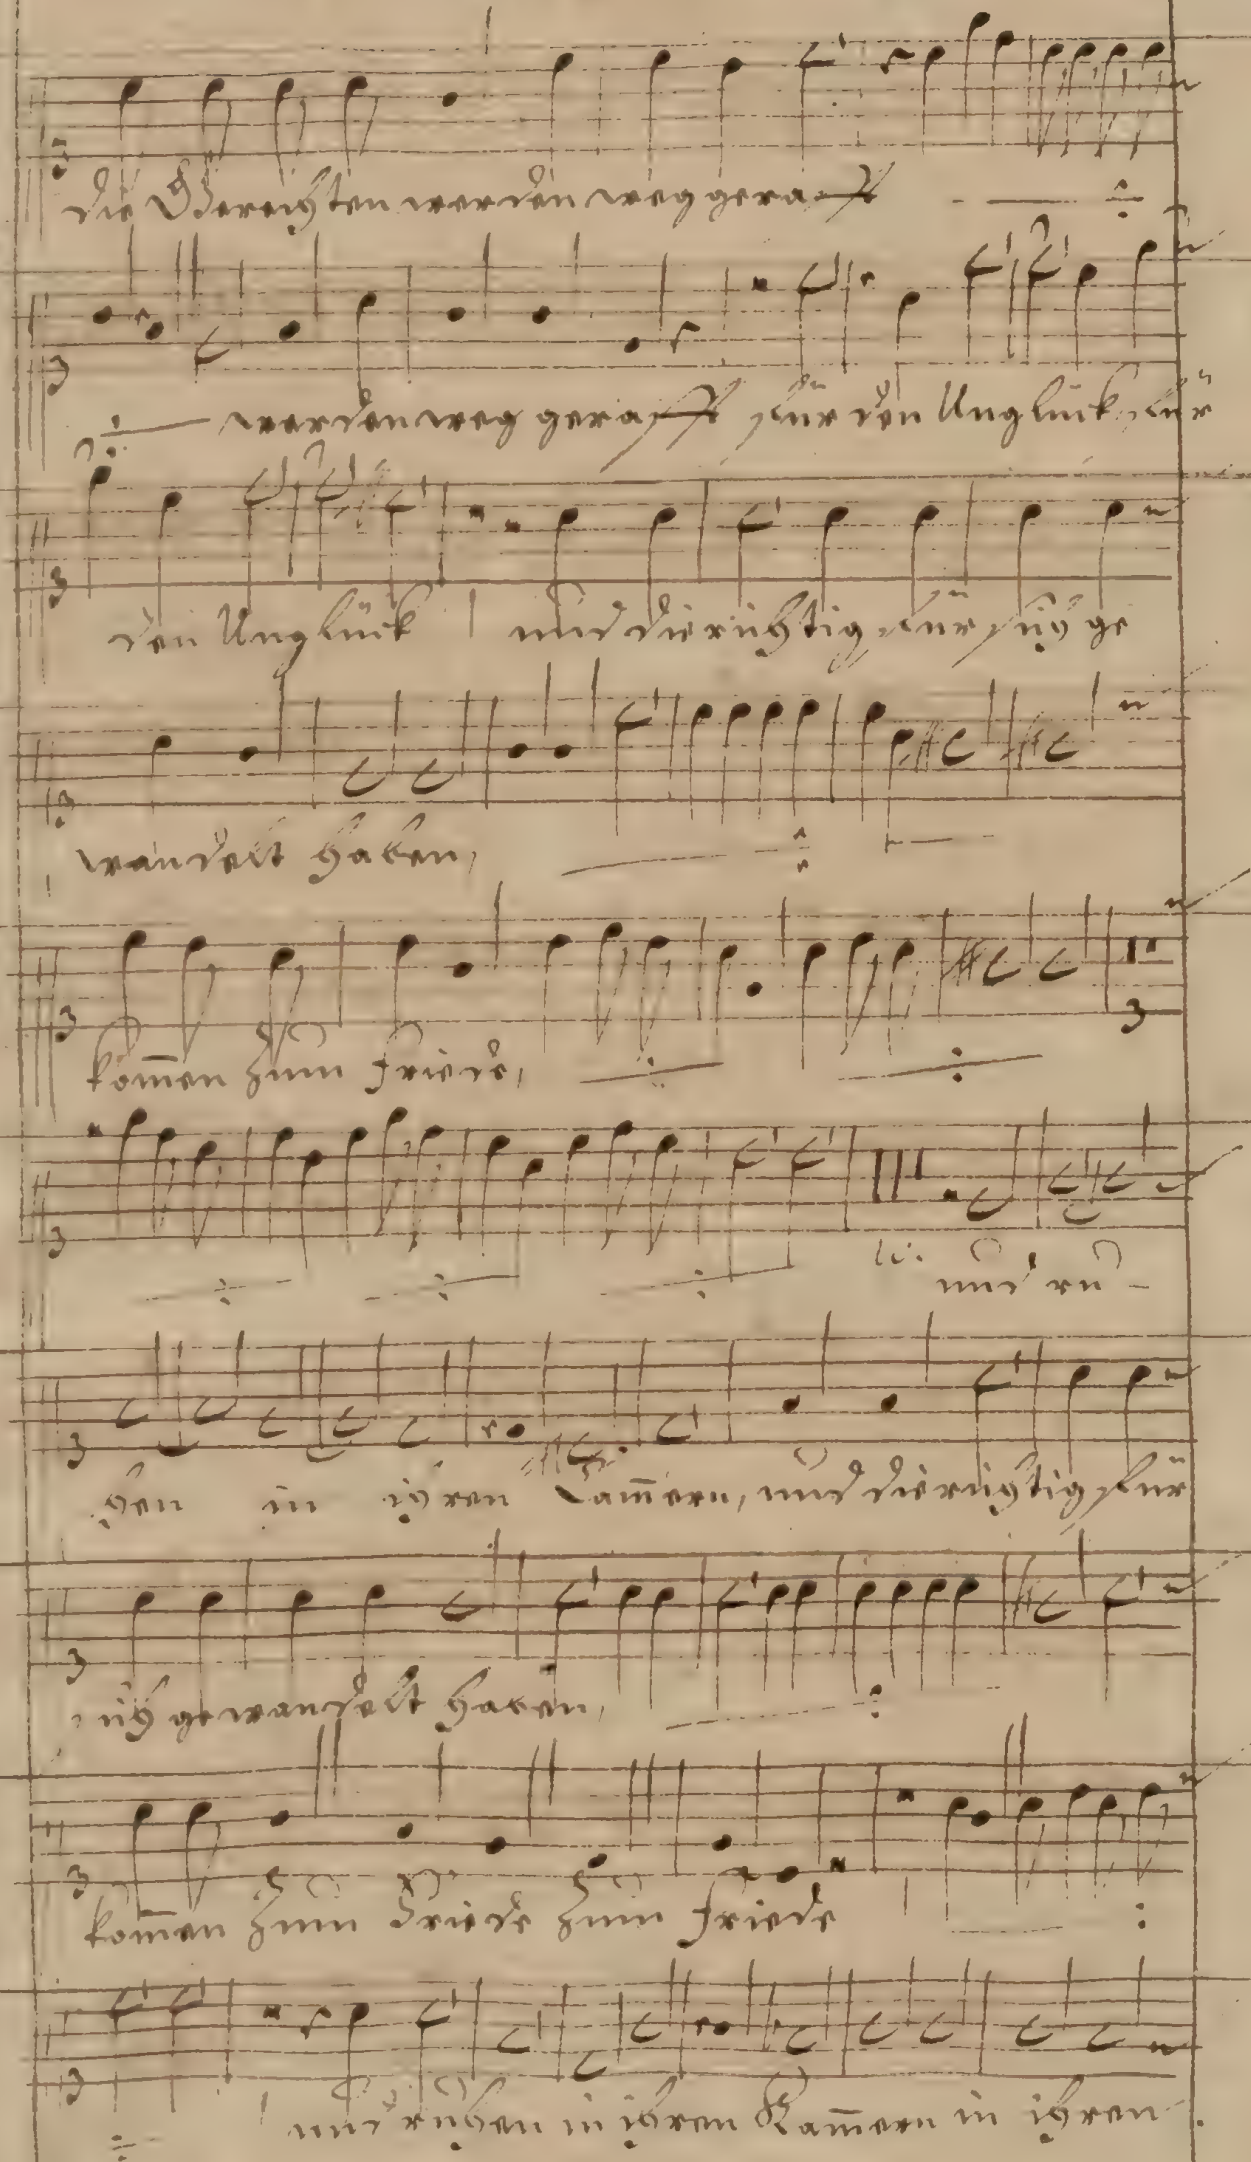 die Gerechten werden weg gerafft
werden weg gerafft für den Unglück für
den Unglück und die richtig für sich ge
wandelt haben,
kom̄en zum Friede,
und ru -
hen in ihren Cam̄ern, und die richtig für
sich gewandelt haben,
kom̄en zum Friede zum Friede
und ruhen in ihren Kam̄ern in ihren